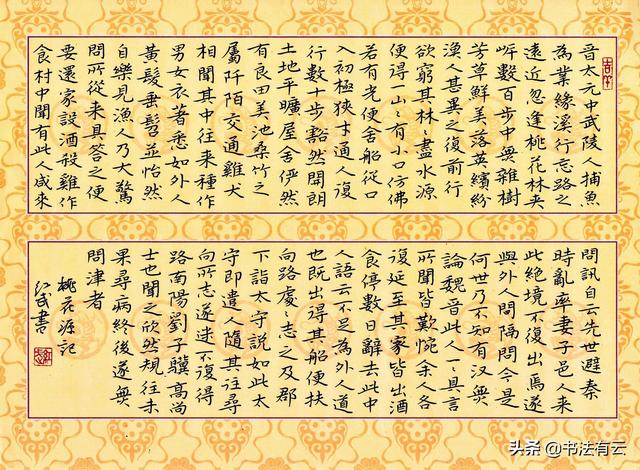 晉太元中武陵人捕魚
為業緣溪行忘路之
遠近忽逢桃花林夾
岸數百步中無雜樹
芳草鮮美落英繽紛
漁人甚異之復前行
欲窮其林々盡水源
便得一山々有小口仿佛
若有光便舍船從口
入初極狹才通人復
行數十步豁然開朗
土地平曠屋舍儼然
有良田美池桑竹之
屬阡陌交通雞犬
相聞其中往來種作
男女衣著悉如外人
黃髮垂髫並怡然
自樂見漁人乃大驚
問所從來具答之便
要還家設酒殺雞作
食村中聞有此人咸來
問訊自云先世避秦
時亂率妻子邑人來
此絕境不復出焉遂
與外人間隔問今是
何世乃不知有汉無
論魏晉此人一々具言
所聞皆歎惋余人各
復延至其家皆出酒
食停數日辭去此中
人語云不足為外人道
也既出得其船便扶
向路處々志之及郡
下詣太守說如此太
守即遣人隨其往尋
向所志遂迷不復得
路南陽劉子驥高尚
士也聞之欣然規往未
果尋病終後遂無
問津者
桃花源記
書
头条 @书法有云